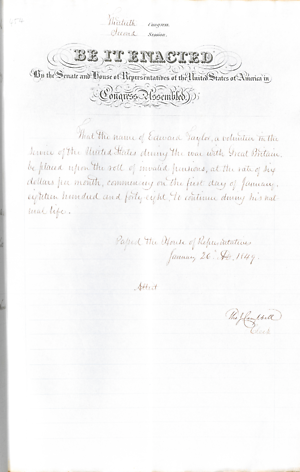 Thirtieth Congress,
Second Session.
BE IT ENACTED
By the Senate and House of Representatives of the United States of America in
Congress Assembled,
That the name of Edward Taylor, a volunteer in the
service of the United States during the war with Great Britain
be placed upon the roll of invalid pensions, at the rate of six
dollars per month, commencing on the first day of January,
eighteen hundred and forty eight, to continue during his nat
ural life.
Passed the House of Representatives
January 26th, 1849.
Attest
Tho J Campbell
Clerk